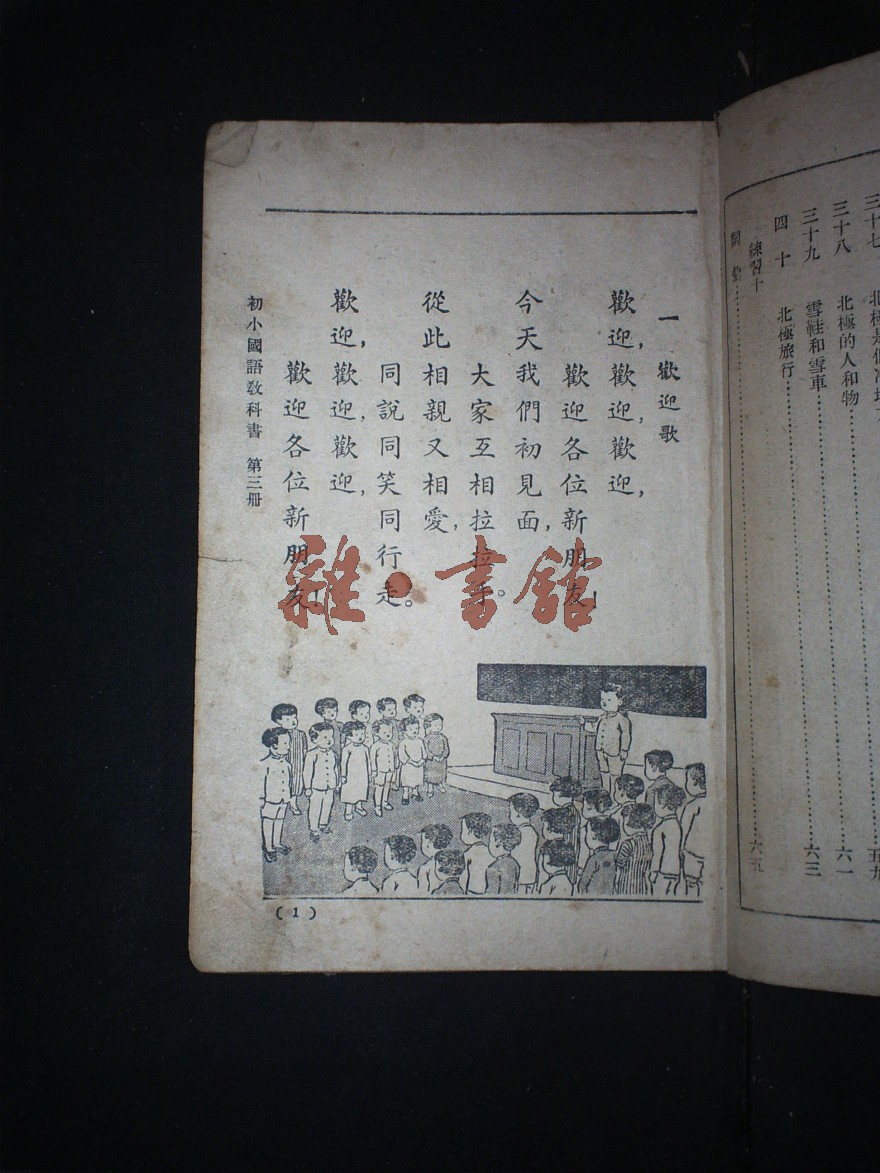 三十七 北極是個冰地方
三十八 北極的人和物 六一
三十九 雪鞋和雪車 六三
四十 北極旅行
練習十 六五
一 歡迎歌
歡迎，歡迎，歡迎，
歡迎各位新朋友！
今天我們初見面，
大家互相拉拉手。
從此相親又相愛，
同說同笑同行走。
歡迎，歡迎，歡迎，
歡迎各位新朋友！
初小國語教科書 第三冊
(1)
雜·書館